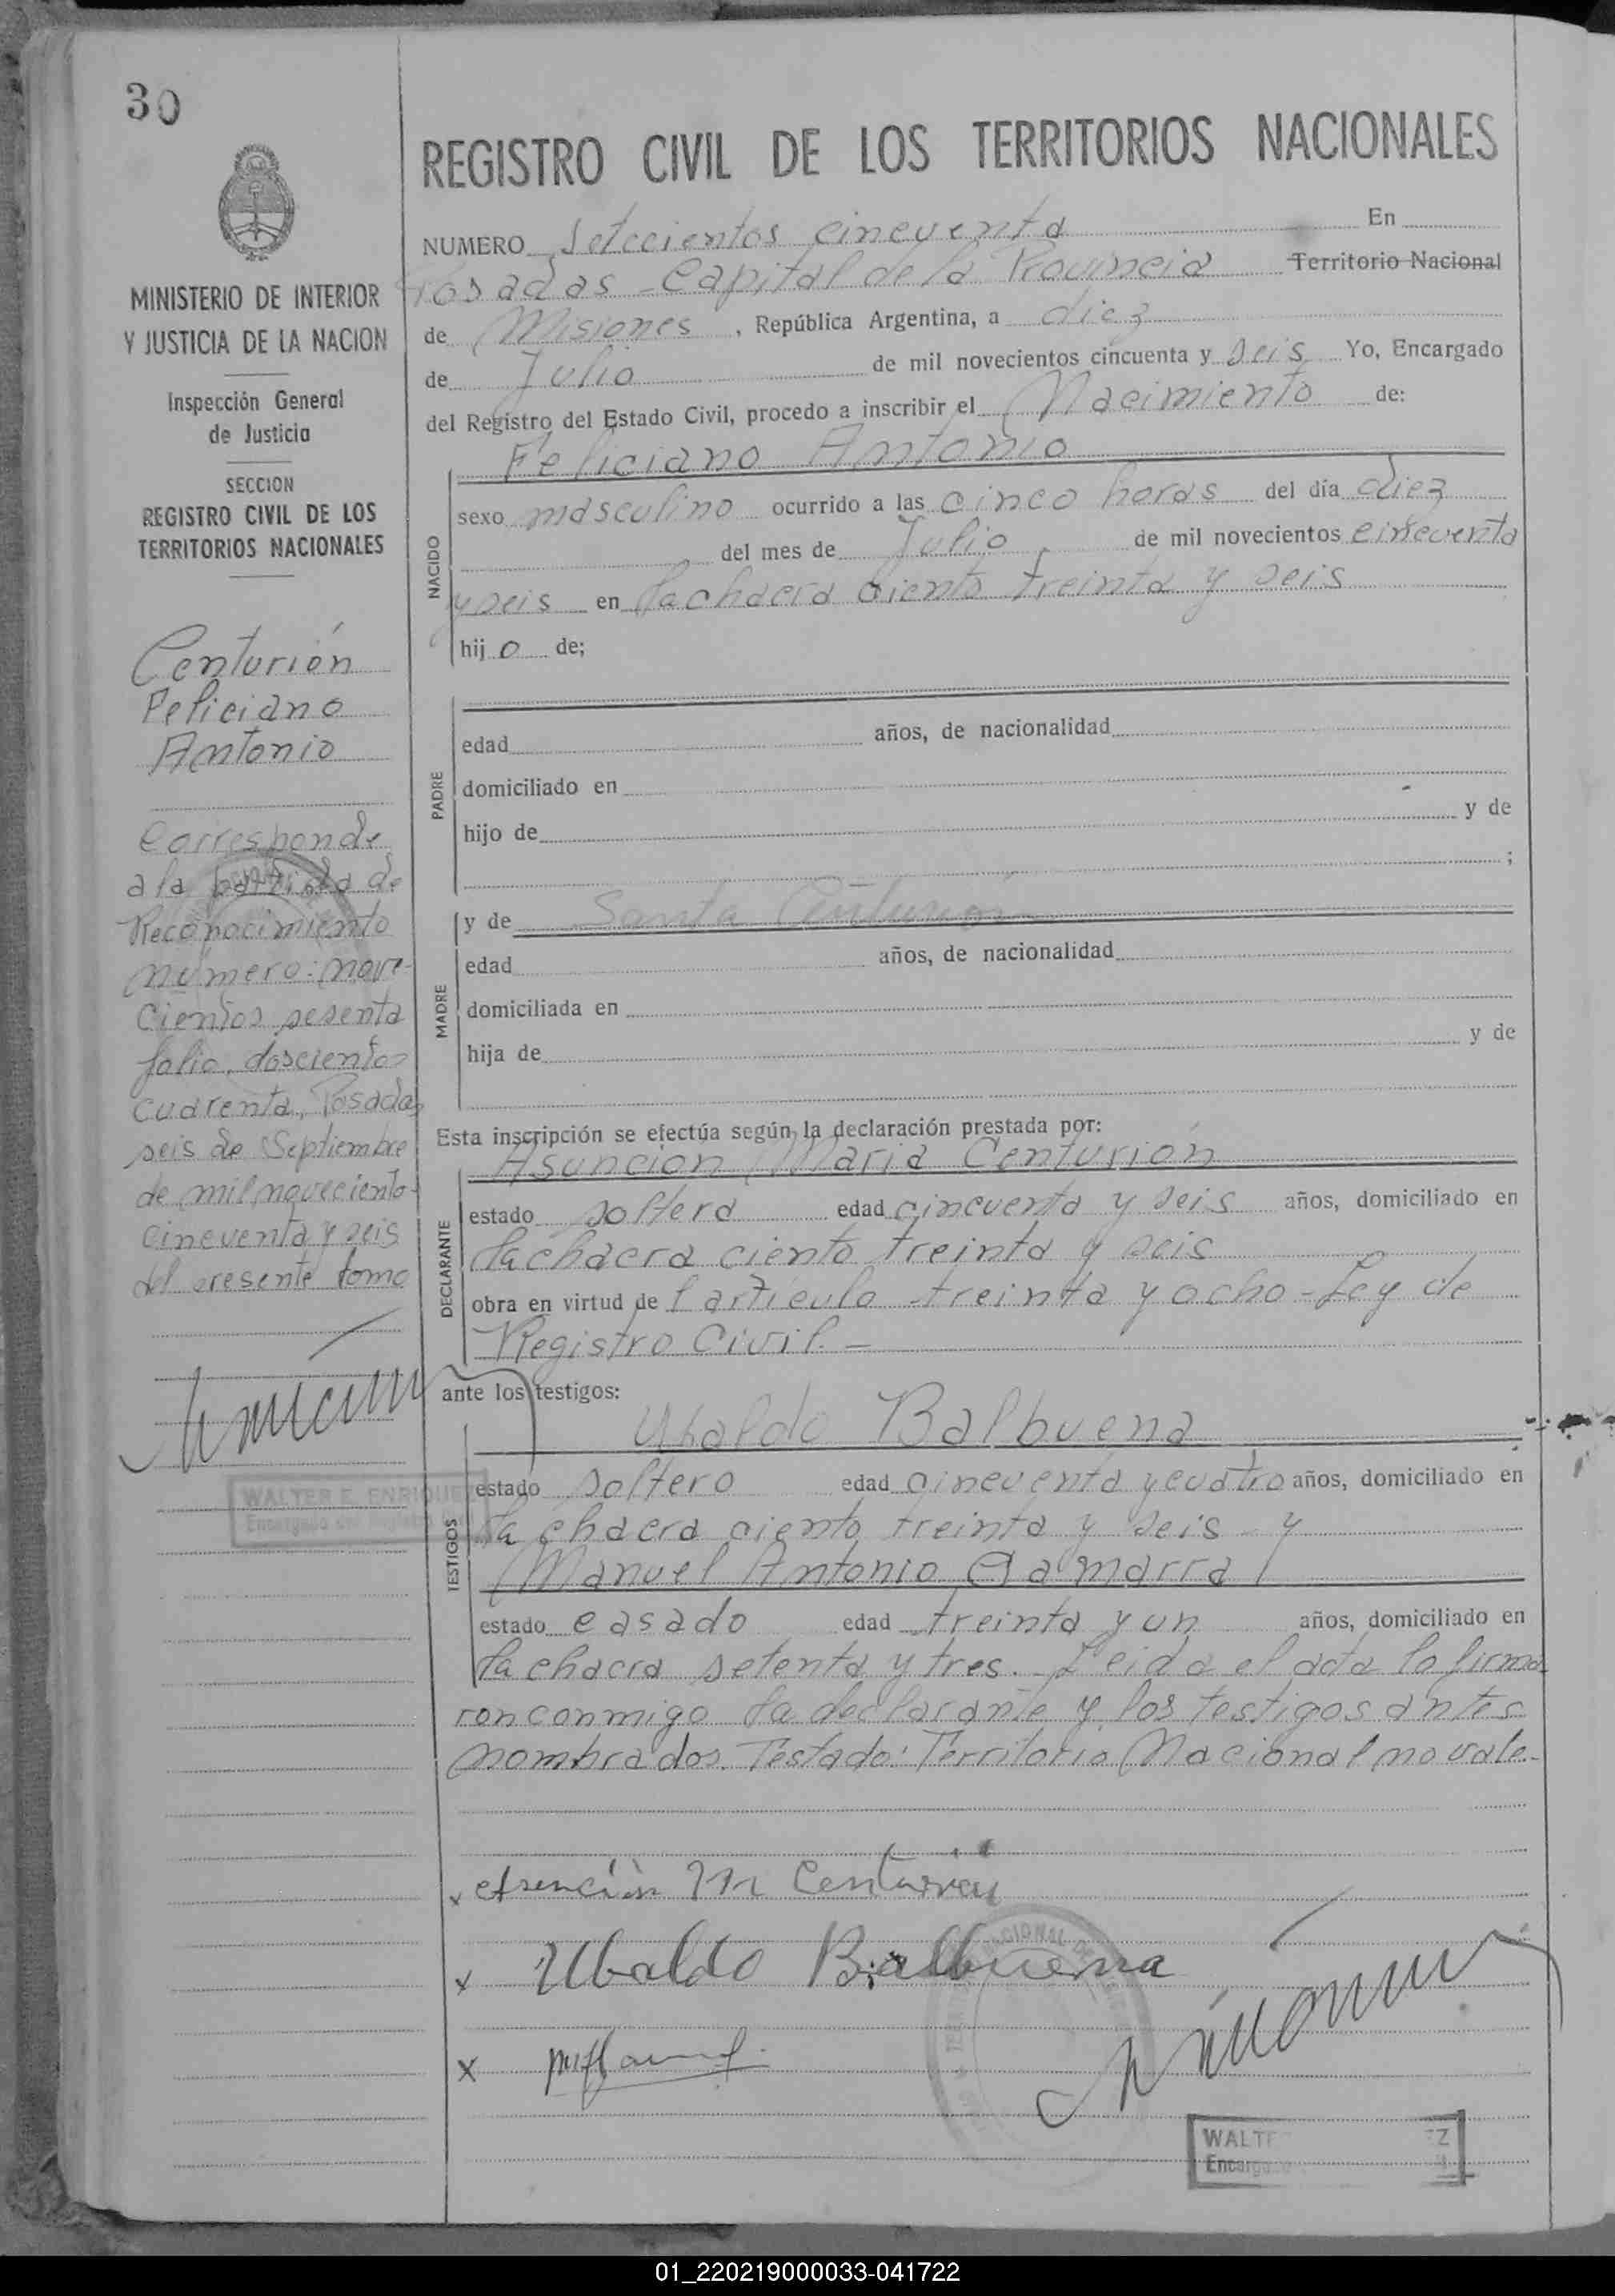 30
REGISTRO CIVIL DE LOS TERRITORIOS NACIONALES
MINISTERIO DE INTERIOR
Y JUSTICIA DE LA NACION
Inspección General
de Justicia
SECCION
REGISTRO CIVIL DE LOS
TERRITORIOS NACIONALES
Centurión
Feliciano
Antonio
Corresponde
a la partida de
Reconocimiento
número: nove-
cientos sesenta
folio, doscientos
cuarenta, Posadas
seis de Septiembre
de mil noveciento-
cincuenta y seis
del presente tomo
WALTER E. ENRIQUEZ
Encargado del Registro
NUMERO Setecientos cincuenta En
Posadas - Capital de la Provincia Territorio Nacional
de Misiones, República Argentina, a diez
de Julio de mil novecientos cincuenta y seis Yo, Encargado
del Registro del Estado Civil, procedo a inscribir el Nacimiento de:
NACIDO
Feliciano Antonio
sexo masculino ocurrido a las cinco horas del día diez
del mes de Julio de mil novecientos cincuenta
y seis en la chacra ciento treinta y seis
hijo de;
PADRE
edad años, de nacionalidad
domiciliado en
hijo de y de
;
MADRE
y de Santa Centurión
edad años, de nacionalidad
domiciliada en
hija de y de
Esta inscripción se efectúa según la declaración prestada por:
DECLARANTE
Asunción María Centurión
estado soltera edad cincuenta y seis años, domiciliado en
la chacra ciento treinta y seis
obra en virtud del artículo treinta y ocho - Ley de
Registro Civil. -
ante los testigos:
TESTIGOS
Ubaldo Balbuena
estado soltero edad cincuenta y cuatro años, domiciliado en
la chacra ciento treinta y seis - y
Manuel Antonio Gamarra
estado casado edad treinta y un años, domiciliado en
la chacra setenta y tres. Leida el acta la firma-
ron conmigo la declarante y los testigos antes
nombrados. Testado: Territorio Nacional no vale-
x Asunción M Centurión
x Ubaldo Balbuena
x
WALT EZ
Encarg
01_220219000033-041722